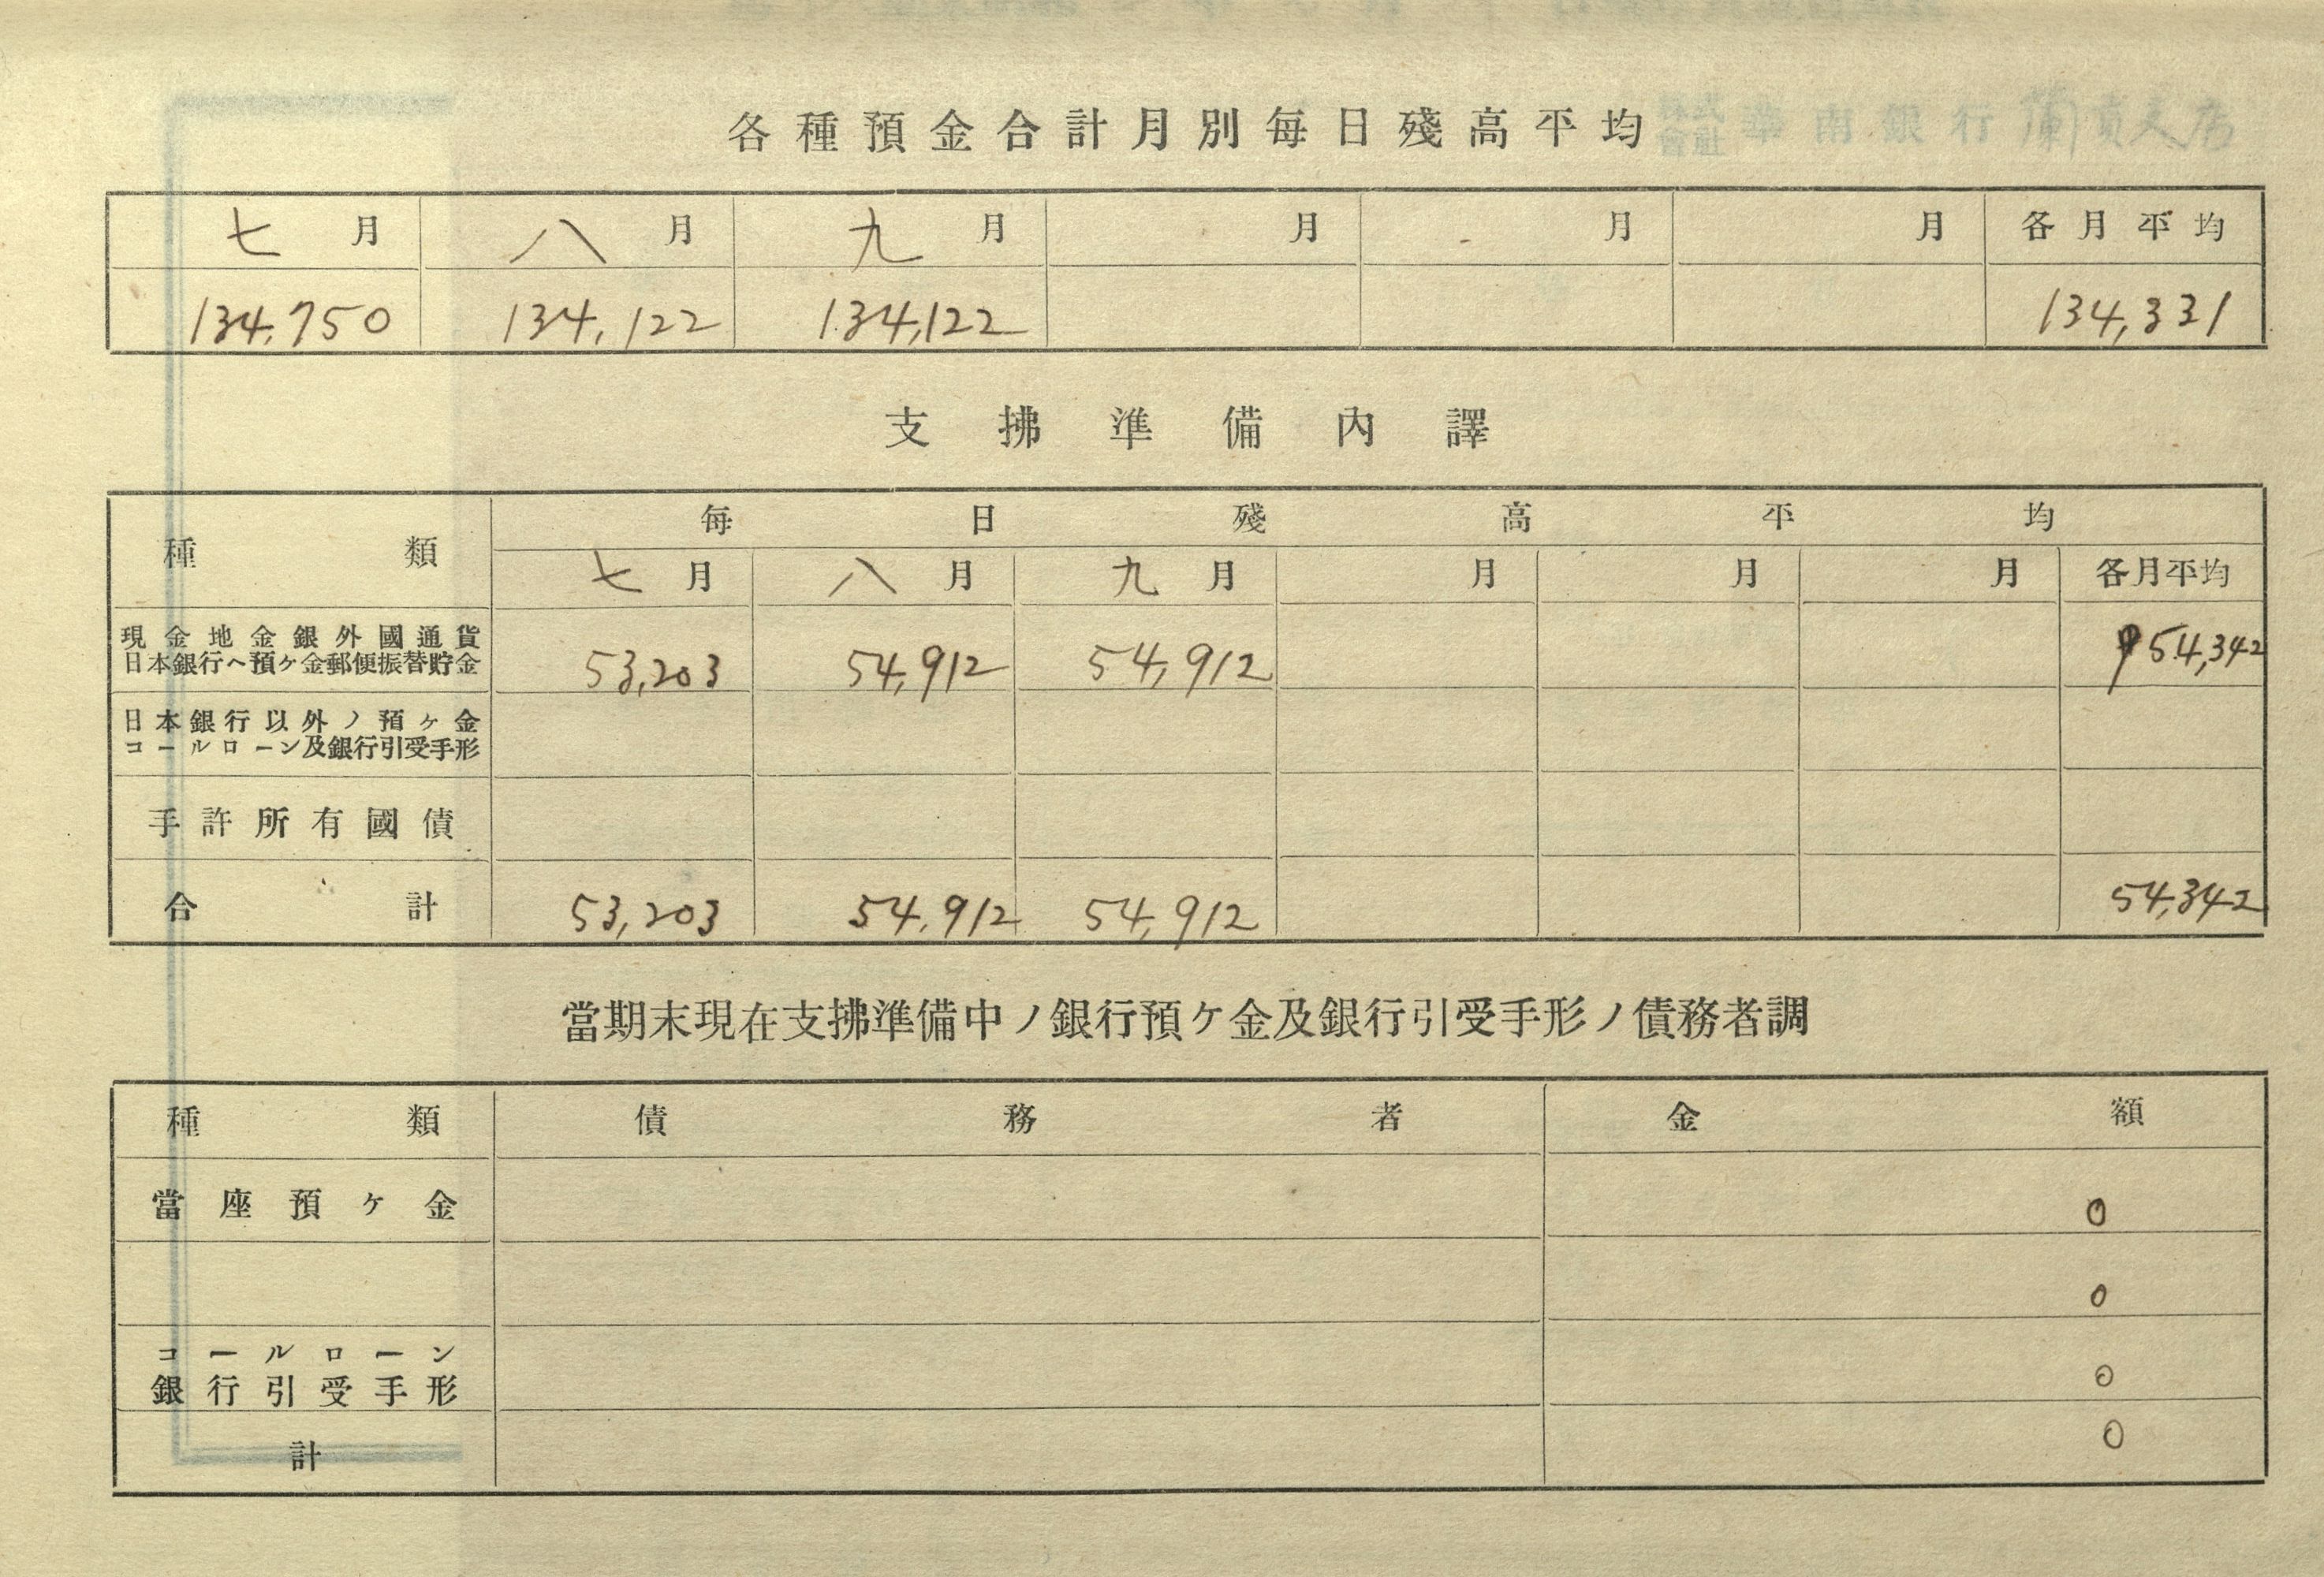 各種預金合計月別每日殘高平均
株式會社 華南銀行
七月 八月 九月 月 月 月 各月平均
134,750 134,122 134,122 134,331
支拂準備內譯
種類 每日殘高平均
七月 八月 九月 月 月 月 各月平均
現金地金銀外國通貨
日本銀行ヘ預ケ金郵便振替貯金 53,203 54,912 54,912 54,342
日本銀行以外ノ預ケ金
コールローン及銀行引受手形
手許所有國債
合計 53,203 54,912 54,912 54,342
當期末現在支拂準備中ノ銀行預ケ金及銀行引受手形ノ債務者調
種類 債務者 金額
當座預ケ金 0
0
コールローン
銀行引受手形 0
計 0